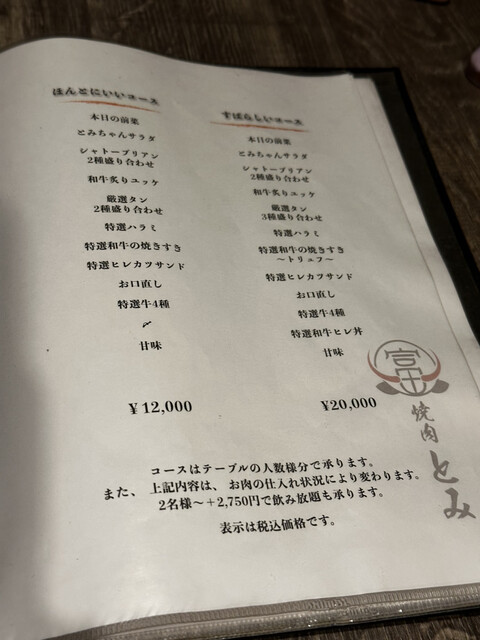 ほんとにいいコース
本日の前菜
とみちゃんサラダ
シャトーブリアン
2種盛り合わせ
和牛炙りユッケ
厳選タン
2種盛り合わせ
特選ハラミ
特選和牛の焼きすき
特選ヒレカツサンド
お口直し
特選牛4種
〆
甘味
¥12,000
すばらしいコース
本日の前菜
とみちゃんサラダ
シャトーブリアン
2種盛り合わせ
和牛炙りユッケ
厳選タン
3種盛り合わせ
特選ハラミ
特選和牛の焼きすき
～トリュフ～
特選ヒレカツサンド
お口直し
特選牛4種
特選和牛ヒレ丼
甘味
¥20,000
コースはテーブルの人数様分で承ります。
また、上記内容は、お肉の仕入れ状況により変わります。
2名様～+2,750円で飲み放題も承ります。
表示は税込価格です。
富
焼肉
とみ